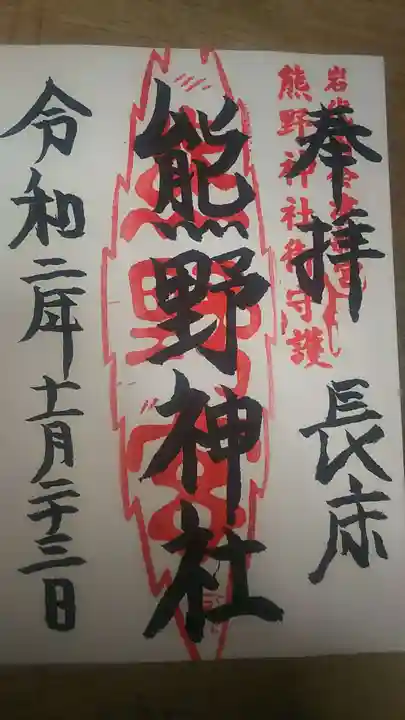 奉拝 長床
熊野神社御守護
熊野神社
令和二年十一月二十三日